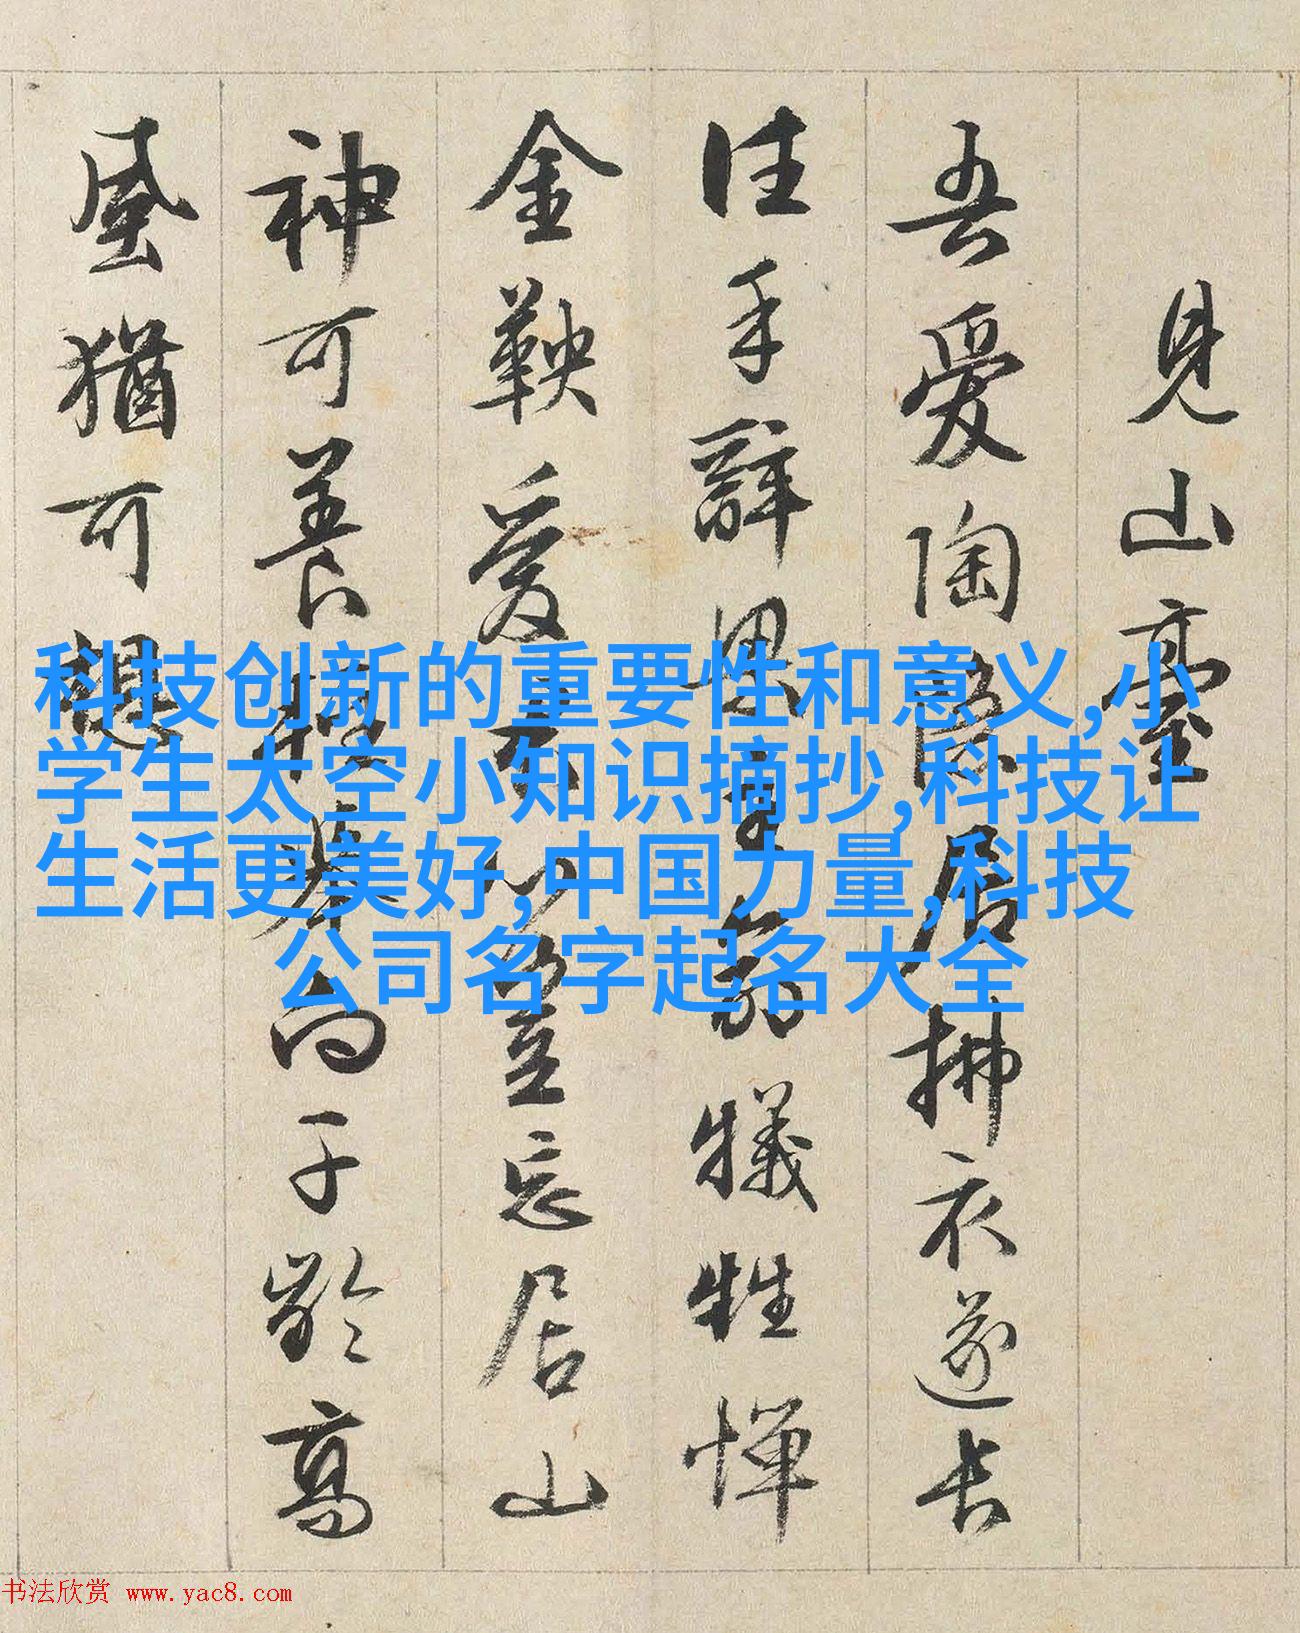 見山臺
吾愛陶隱居拂衣遂長
往手辭主犧牲憚
金鞅忘居山
神可養向千齡高
風猶可想
科技创新的重要性和意义,小
学生太空小知识摘抄,科技让
生活更美好,中国力量,科技
公司名字起名大全
书法欣赏 www.yac8.com